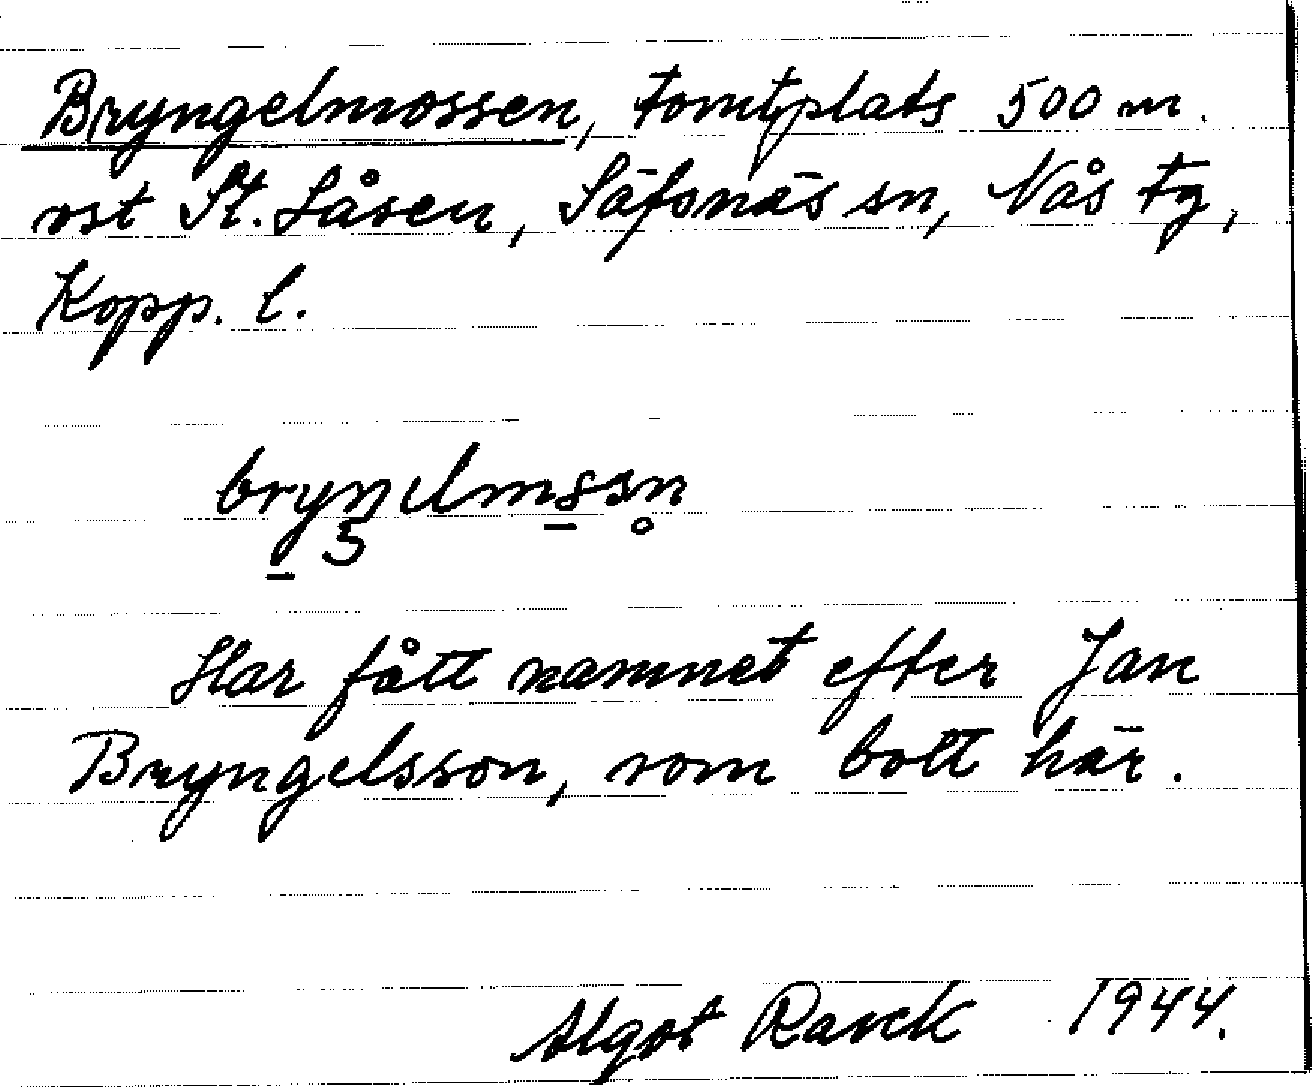 Bryngelmossen, tomtplats 500 m.
ost St. Låsen, Säfsnäs sn, Nås tg,
Kopp. l.
Har fått namnet efter Jan
Bryngelsson, som bott här.
Algot 1944.